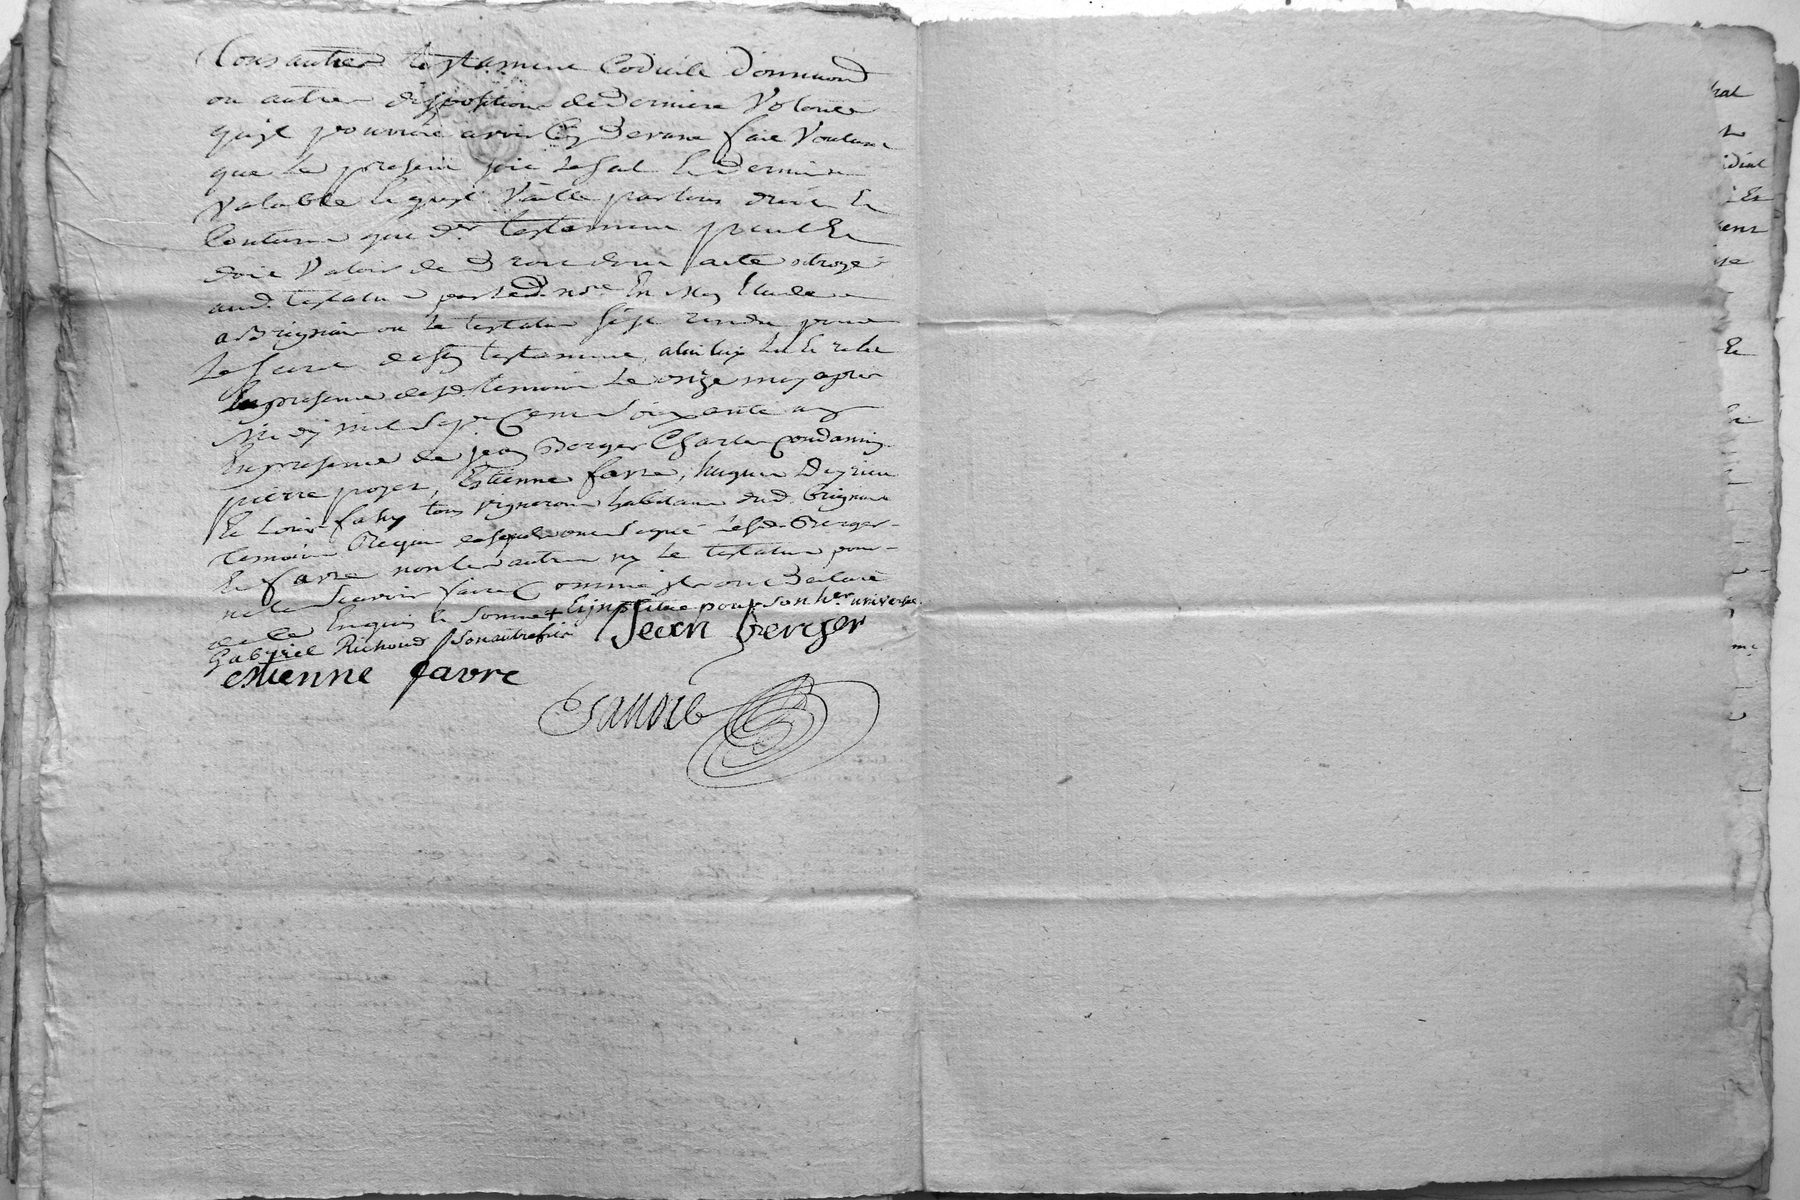 Tous autres testament Codicile Donnaon
ou autres disposition de Derniere Volonté
quil pourroit avoir Cy Devant fait Voulant
que le present soit le seul le Dernier
Valable lequel Vaille par tous droit et
Coutume que dt testament peut Et
doit Valoir de Droit dont acte octroyé
aud. testateur par led. nore En son Etude
a Brignais ou le testateur sest rendu pour
le faire de son testament, a lui lu Et relu
En presence desd. temoins le onze may apres
Midy mil sept Cent soixante un
En presence de jean Berger Charles
pierre poyet, Estienne favre, hugues
Et Louis faky tous vignerons habitans dud. Brignais
temoins Requis lesquels ont signé lesd. Berger
Et favre non les autres ny le testateur pour
ne le scavoir faire Comme ils ont Declaré
de ce Enquis Et sommé + Et institue pour son her. universel
Gabriel Richoud son autre
Jean berger
estienne favre